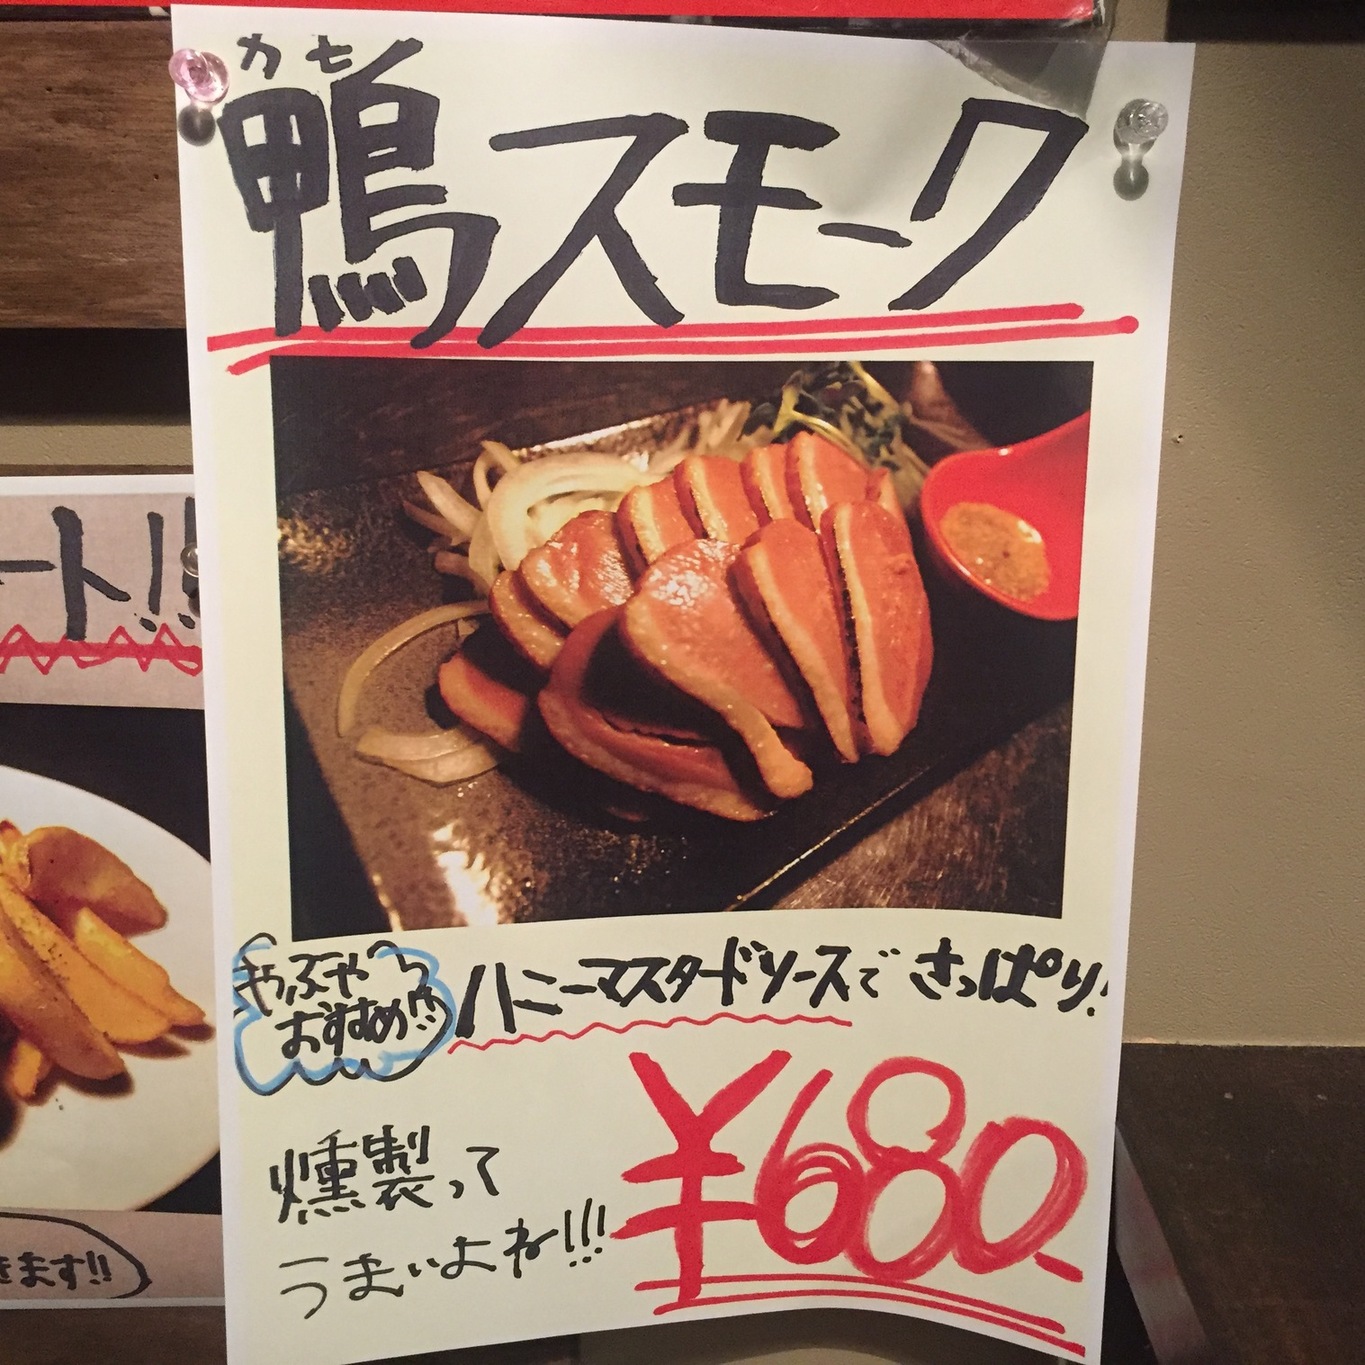 カモ
鴨スモーク
やぶや
おすすめ!!
ハニーマスタードソースで さっぱり!
燻製って
うまいよね!!!
¥680.
ート!!
きます!!